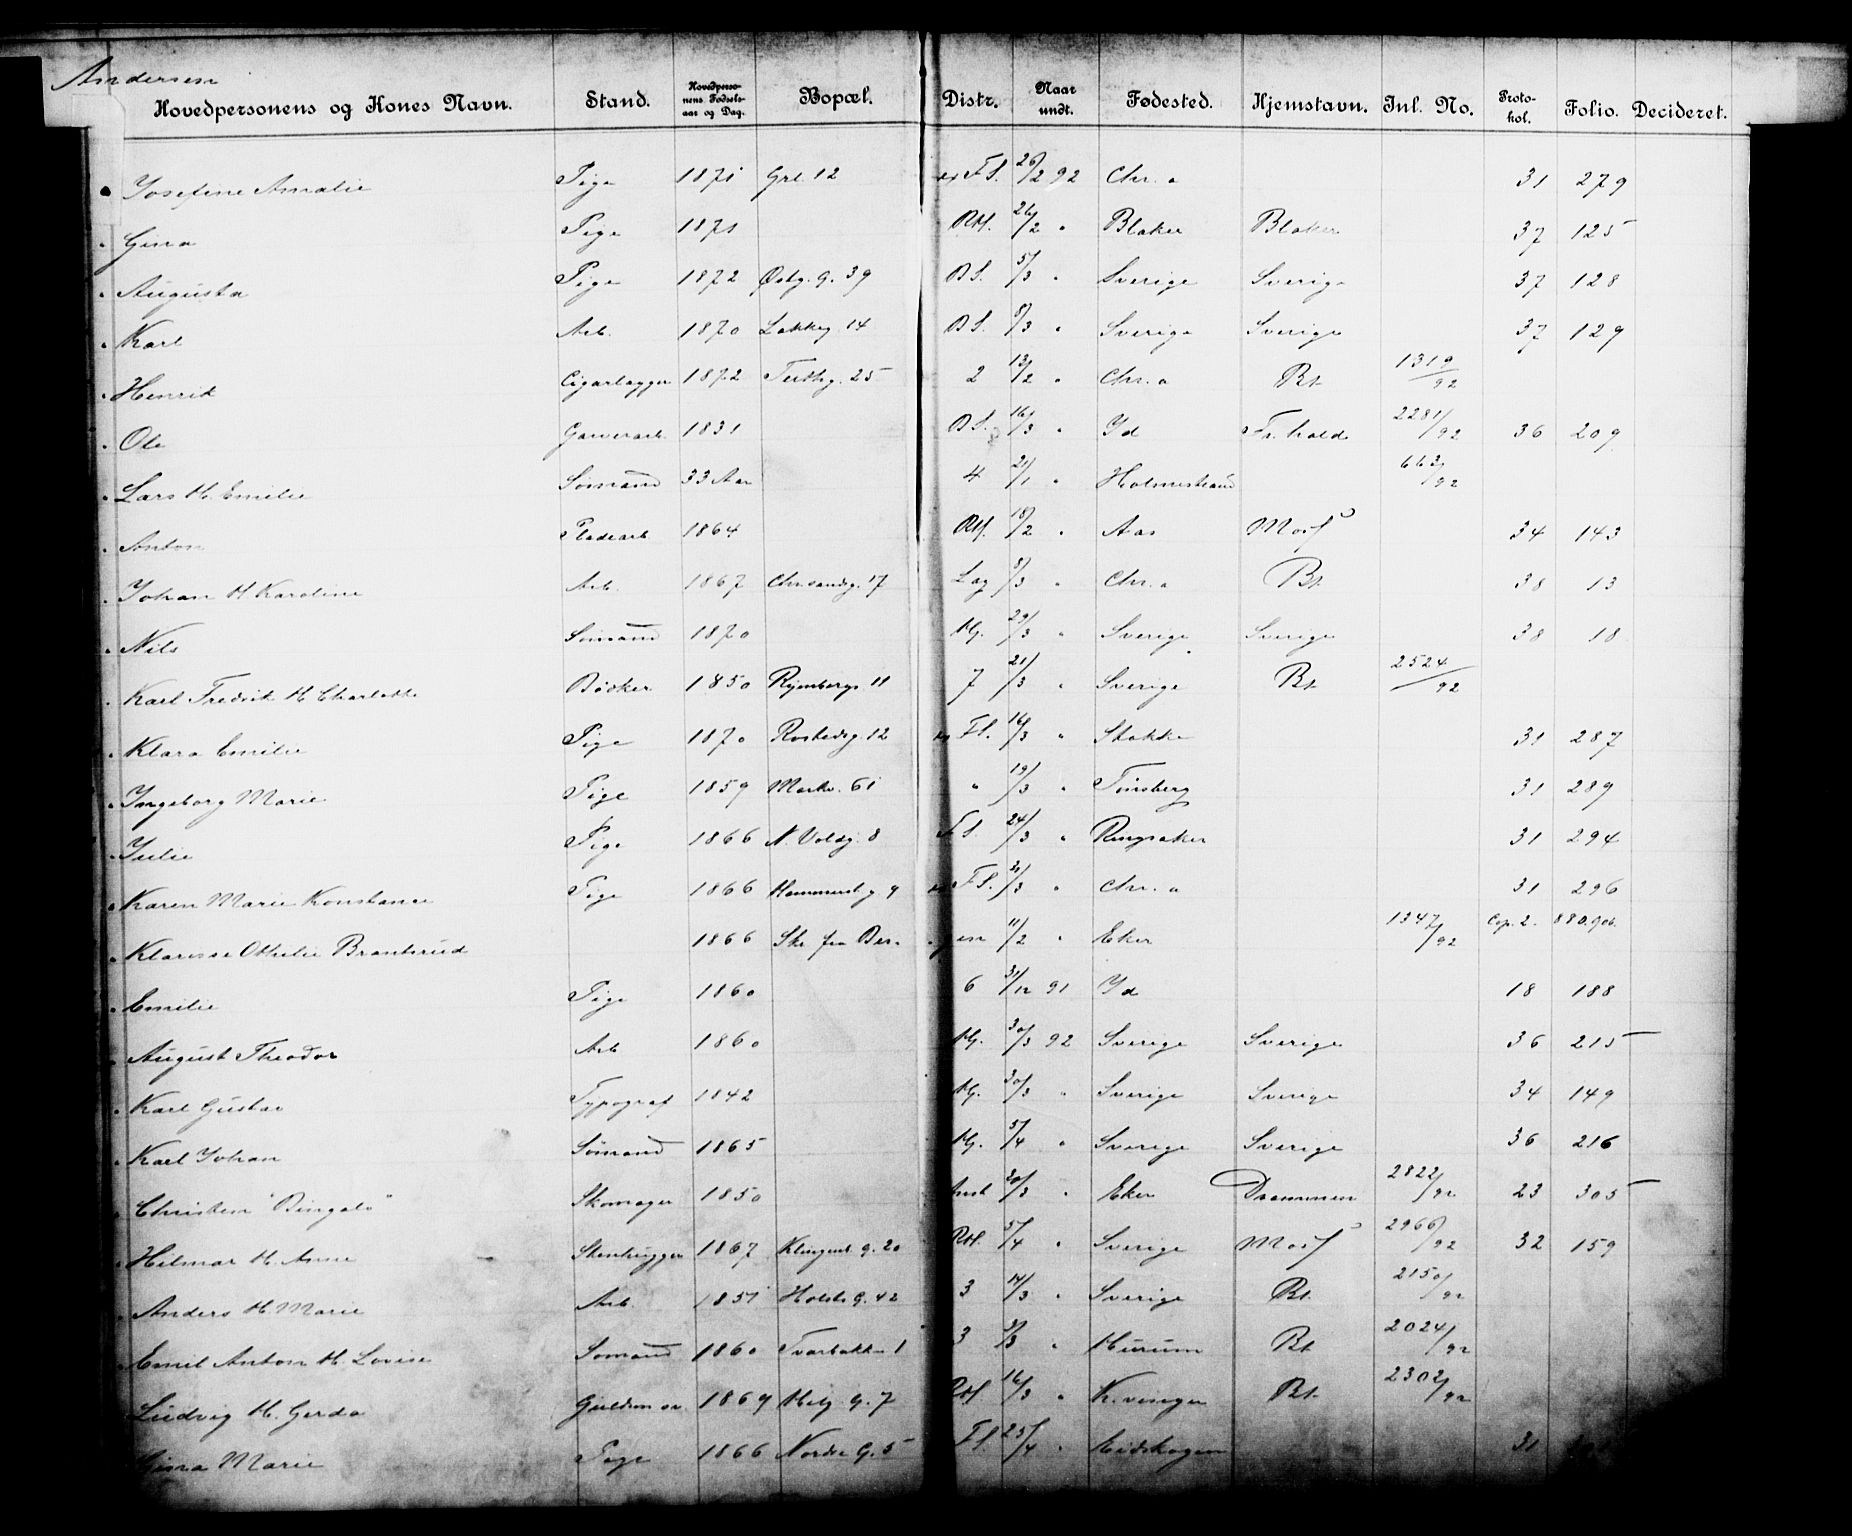 Andersen
Hovedpersonens og Kones Navn. Stand. Hovedpersonens Fødselsaar og Dag. Bopæl. Distr. Naar undt. Fødested. Hjemstavn. Inl. No. Protokol. Folio. Decideret.
Josefine Amalie Pige 1871 Grl. 12 F.S. 26/2 92 Chr.a 31 279
Gina Pige 1871 RH. 26/2 " Blaker Blaker 37 125
Augusta Pige 1872 Østg. g. 39 B.S. 5/3 " Sverige Sverige 37 128
Karl Arb. 1870 Lakkg 14 B.S. 8/3 " Sverige Sverige 37 129
Henrik Cigarlægger 1872 Tufthg. 25 2 13/2 " Chr.a Bt. 1319/92
Ole Garverarb. 1831 B.S. 16/3 " Id Fr.hald 2281/92 36 209
Lars H. Emilie Sømand 33 Aar 4 21/1 " Holmestrand 663/92
Anton Pladearb 1864 RH. 18/2 " Aas Moss 34 143
Johan H. Karoline Arb. 1867 Chr.sandsg. 17 Lag 8/3 " Chr.a Bt. 38 13
Nils Sømand 1870 Hj. 29/3 " Sverige Sverige 38 18
Karl Fredrik H. Charlotte Bødker 1850 Rynbergs 11 7 21/3 " Sverige Bt. 2524/92
Klara Emilie Pige 1870 Rostedsg. 12 F.S. 16/3 " Stokke 31 287
Ingeborg Marie Pige 1859 Markv. 61 " 19/3 " Tønsberg 31 289
Julie Pige 1866 N. Voldg. 8 F.S. 24/3 " Ringsaker 31 294
Karen Marie Konstance Pige 1866 Hammersb.g. 9 F.S. 31/3 " Chr.a 31 296
Klarisse Othilie Brantsrud 1866 Skr. fra Ber- gen 11/2 " Eker 1347/92 Cop. 2. 880.906.
Emilie Pige 1860 6 31/12 91 Id 18 188
August Theodor Arb 1860 Hj. 30/3 92 Sverige Sverige 36 215
Karl Gustav Typograf 1842 Hj. 30/3 " Sverige Sverige 34 149
Karl Johan Sømand 1865 Hj. 5/4 " Sverige Sverige 36 216
Christen "Bingalo" Skomager 1850 Anst 30/3 " Eker Drammen 2822/92 23 305
Hilmar H. Anne Stenhugger 1867 Klingenb. g. 20 RH. 5/4 " Sverige Moss 2966/92 32 159
Anders H. Marie Arb. 1851 Holsts g. 42 3 14/3 " Sverige Bt. 2150/92
Emil Anton H. Lovise Sømand 1860 Tvarbakken 1 3 9/3 " Hurum Bt 2024/92
Ludvig H. Gerda Guldsm sv. 1869 Helg. G. 7 RH. 16/3 " K.vinger Bt. 2302/92
Gina Marie Pige 1866 Nordre G. 5 F.S. 25/4 " Eidskogen 31